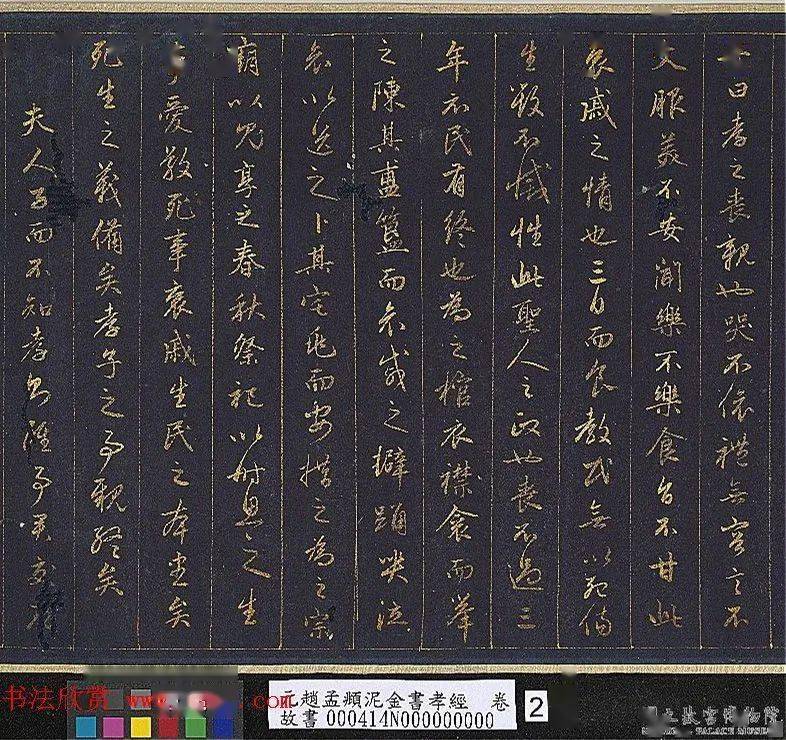 子曰孝子之喪親也哭不偯禮無容言不
文服美不安聞樂不樂食旨不甘此
哀戚之情也三日而食教民無以死傷
生毀不滅性此聖人之政也喪不過三
年示民有終也為之棺衣襟食而舉
之陳其簠簋而哀戚之擗踊哭泣
哀以送之卜其宅兆而安措之為之宗
廟以鬼享之春秋祭祀以時思之生
事愛敬死事哀戚生民之本盡矣
死生之義備矣孝子之事親終矣
夫人子而不知孝
元趙孟頫泥金書孝經 卷
故書000414N000000000
2
书法欣赏
PALACE MUSEUM